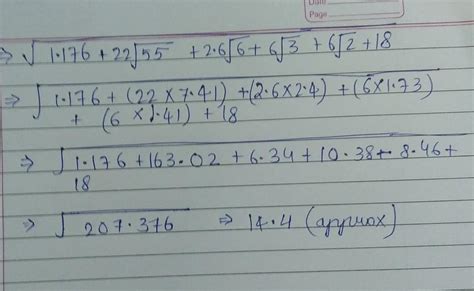 Date
Page
⇒ √1·176 + 22√55 + 2·6√6 + 6√3 + 6√2 + 18
⇒ √1·176 + (22 × 7·41) + (2·6 × 2·4) + (6 × 1·73)
+ (6 × 1·41) + 18
⇒ √1·176 + 163·02 + 6·34 + 10·38 + 8·46 +
18
⇒ √207·376 ⇒ 14·4 (approx)